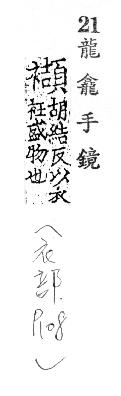 21 龍龕手鏡
襭胡結反以衣
衽盛物也
(衣部. P108)